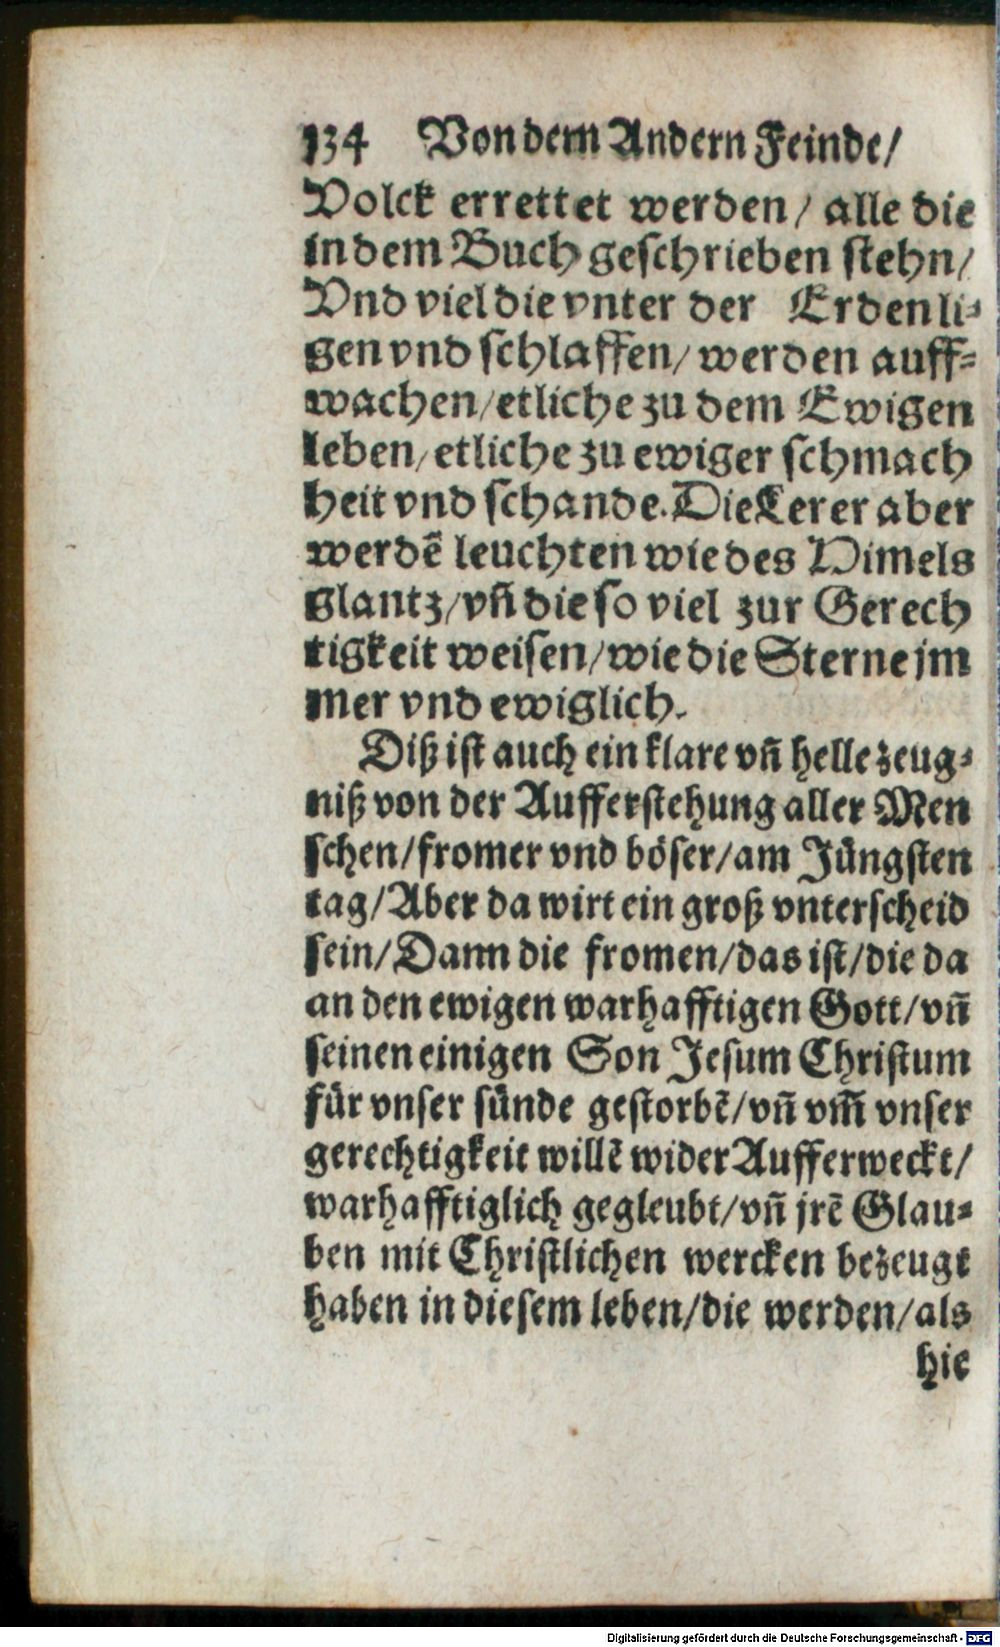 134 Von dem Andern Feinde/
Volck errettet werden/ alle die
in dem Buch geschrieben stehn/
Vnd viel die vnter der Erden li⸗
gen vnd schlaffen/ werden auff⸗
wachen/etliche zu dem Ewigen
leben/etliche zu ewiger schmach
heit vnd schande. Die Lerer aber
werdẽ leuchten wie des Himels
glantz/vñ die so viel zur Gerech
tigkeit weisen/wie die Sterne jm
mer vnd ewiglich.
Diß ist auch ein klare vñ helle zeug⸗
niß von der Aufferstehung aller Men
schen/fromer vnd böser/am Jüngsten
tag/Aber da wirt ein groß vnterscheid
sein/Dann die fromen/das ist/die da
an den ewigen warhafftigen Gott/vñ
seinen einigen Son Jesum Christum
für vnser sünde gestorbẽ/vñ vm̃ vnser
gerechtigkeit willẽ wider Aufferweckt/
warhafftiglich gegleubt/vñ jrẽ Glau⸗
ben mit Christlichen wercken bezeugt
haben in diesem leben/die werden/als
hie
Digitalisierung gefördert durch die Deutsche Forschungsgemeinschaft - DFG